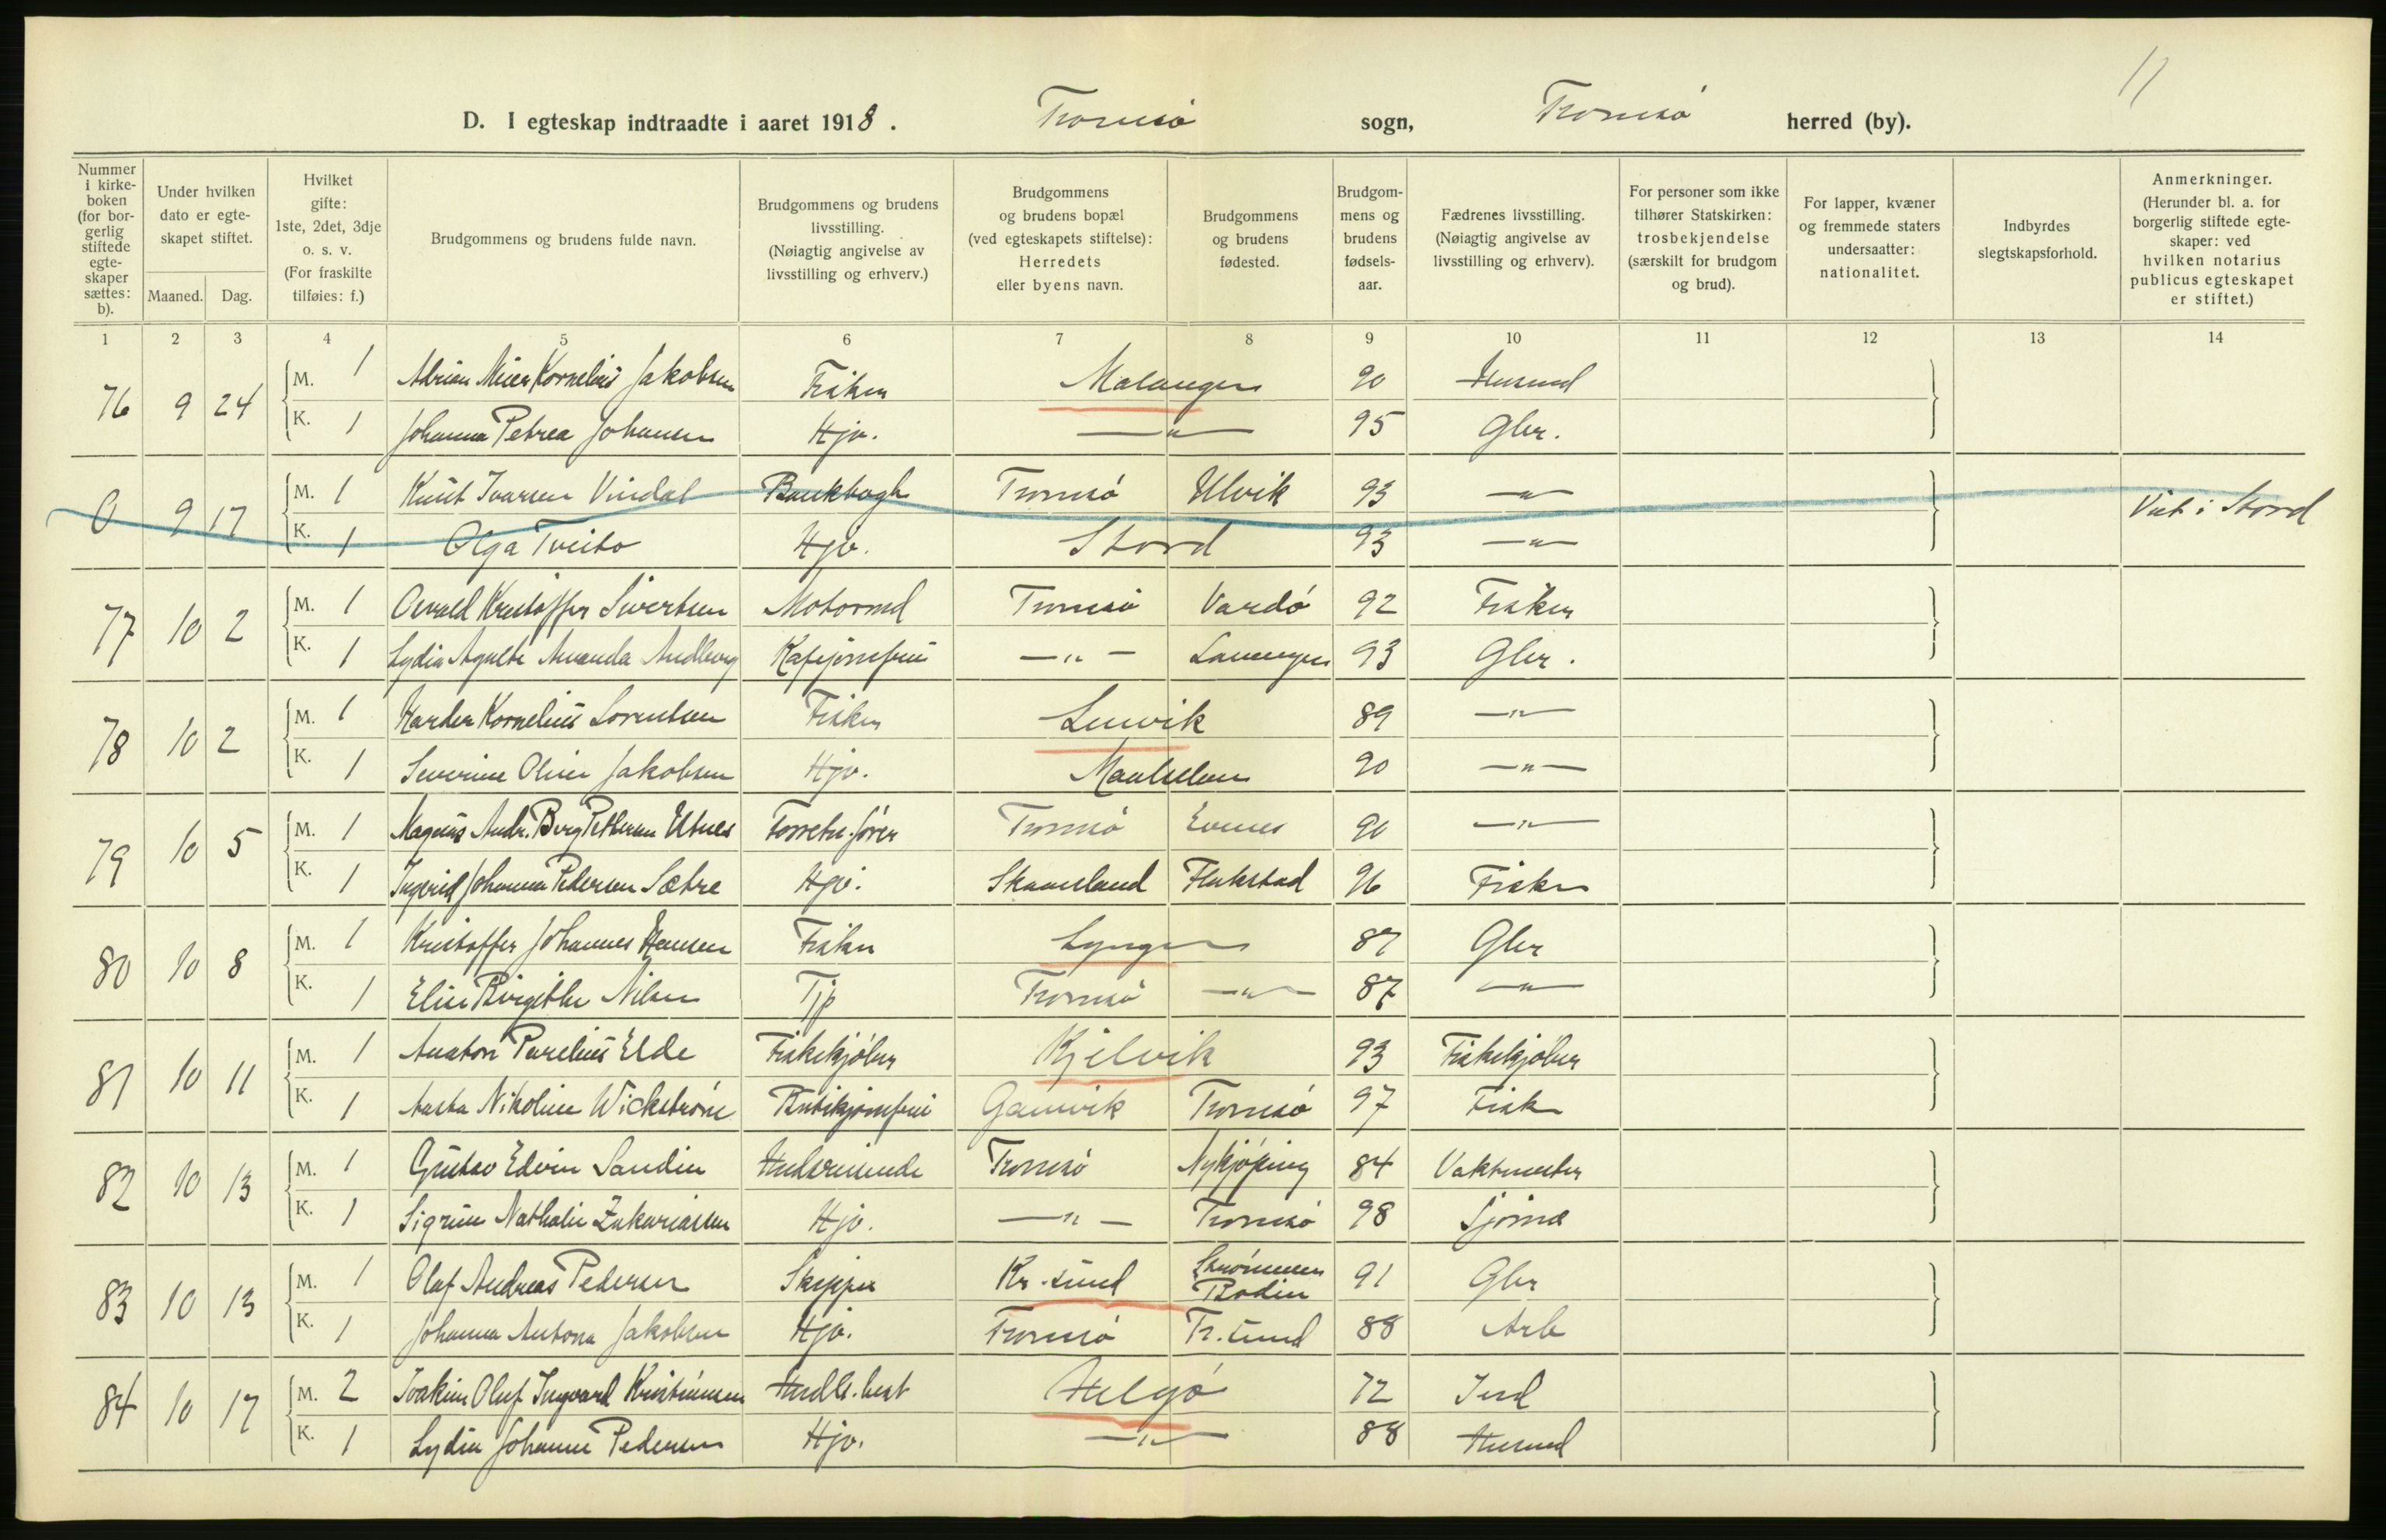 11
D. I egteskap indtraadte i aaret 1918. Tromsø sogn, Tromsø herred (by).
Nummer i kirke-boken (for bor-gerlig stiftede egte-skaper sættes: b).
Under hvilken dato er egte-skapet stiftet.
Maaned. Dag.
Hvilket gifte: 1ste, 2det, 3dje o. s. v. (For fraskilte tilføies: f.)
Brudgommens og brudens fulde navn.
Brudgommens og brudens livsstilling. (Nøiagtig angivelse av livsstilling og erhverv.)
Brudgommens og brudens bopæl (ved egteskapets stiftelse): Herredets eller byens navn.
Brudgommens og brudens fødested.
Brudgom-mens og brudens fødsels-aar.
Fædrenes livsstilling. (Nøiagtig angivelse av livsstilling og erhverv).
For personer som ikke tilhører Statskirken: trosbekjendelse (særskilt for brudgom og brud).
For lapper, kvæner og fremmede staters undersaatter: nationalitet.
Indbyrdes slegtskapsforhold.
Anmerkninger. (Herunder bl. a. for borgerlig stiftede egte-skaper: ved hvilken notarius publicus egteskapet er stiftet.)
1 2 3 4 5 6 7 8 9 10 11 12 13 14
76 9 24 M. 1 Adrian Meier Kornelius Jakobsen Fisker Malangen 90 Husmd
K. 1 Johanna Petrea Johansen Hjv. —"— 95 Gbr.
0 9 17 M. 1 Knut Ivarsen Vindal Bankbogh Tromsø Ulvik 93 —"— Viet i Stord
K. 1 Olga Tveito Hjv. Stord 93 —"—
77 10 2 M. 1 Osvald Kristoffer Sivertsen Motormd Tromsø Vardø 92 Fisker
K. 1 Lydia Agnete Amanda Andberg Kafejomfru —"— Lavangen 93 Gbr.
78 10 2 M. 1 Harder Kornelius Lorentsen Fisker Lenvik 89 —"—
K. 1 Severine Oline Jakobsen Hjv. Maalselven 90 —"—
79 10 5 M. 1 Magnus Andr. Berg Pettersen Utnes Forretn.fører Tromsø Evenes 90 —"—
K. 1 Ingerid Johanna Pedersen Sætre Hjv. Skaanland Flakstad 96 Fisker
80 10 8 M. 1 Kristoffer Johannes Hansen Fisker Lyngen 87 Gbr
K. 1 Elise Birgithe Nilsen Tjp Tromsø —"— 87 —"—
81 10 11 M. 1 Anaton Parelius Elde Fiskekjøber Kjelvik 93 Fiskekjøber
K. 1 Aasta Nikoline Wickstrøm Butikjomfru Gamvik Tromsø 97 Fisk
82 10 13 M. 1 Gustav Edvin Sandin Handelsreisende Tromsø Nykjøping 84 Vaktmester
K. 1 Sigrun Nathalie Zakariassen Hjv. —"— Tromsø 98 Sjømd
83 10 13 M. 1 Olaf Andreas Pedersen Skipper Kr.sund Strømmen Bodin 91 Gbr
K. 1 Johanna Antona Jakobsen Hjv. Tromsø Tr.sund 88 Arb
84 10 17 M. 2 Joakim Oluf Ingvard Kristiansen Handls.best Helgø 72 Ind
K. 1 Lydia Johanne Pedersen Hjv. —"— 88 Husmd